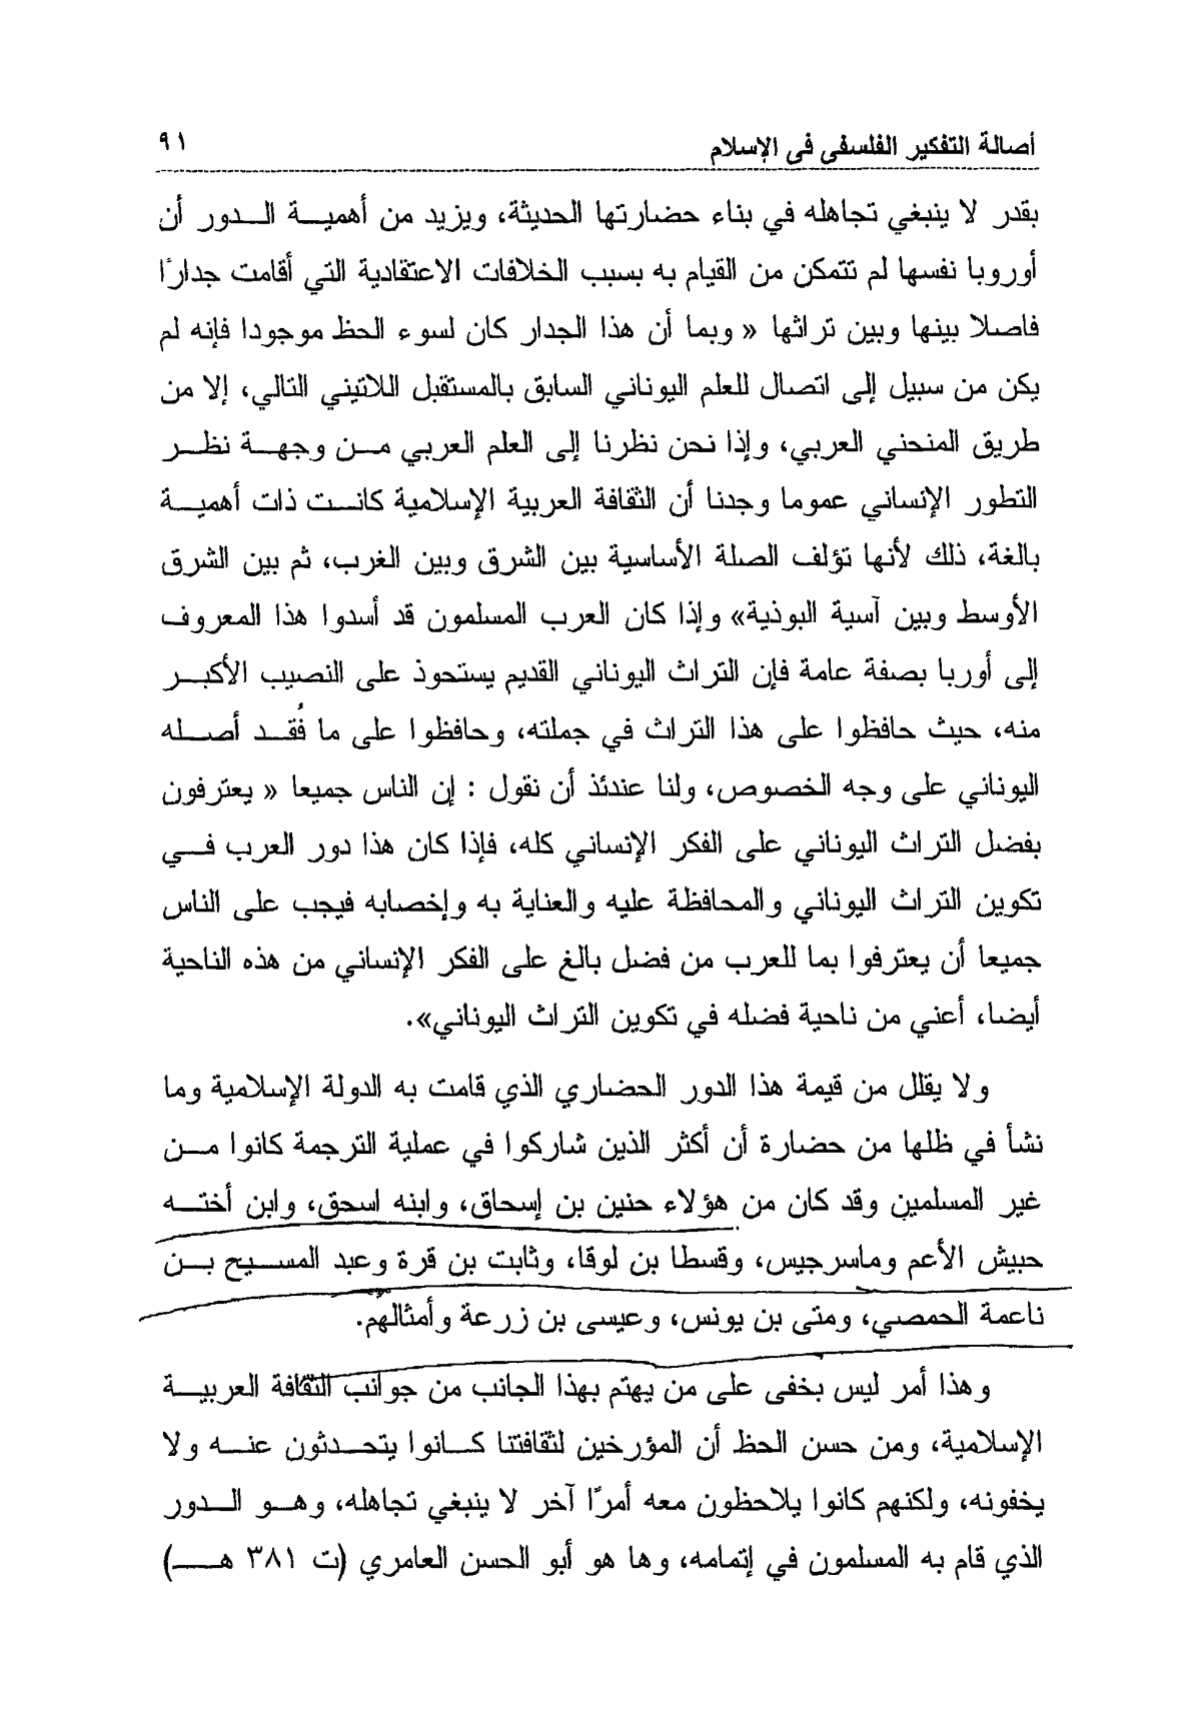 أصالة التفكير الفلسفى فى الإسلام ٩١
بقدر لا ينبغي تجاهله في بناء حضارتها الحديثة، ويزيد من أهميـــة الـــدور أن
أوروبا نفسها لم تتمكن من القيام به بسبب الخلافات الاعتقادية التي أقامت جدارًا
فاصلا بينها وبين تراثها « وبما أن هذا الجدار كان لسوء الحظ موجودا فإنه لم
يكن من سبيل إلى اتصال للعلم اليوناني السابق بالمستقبل اللاتيني التالي، إلا من
طريق المنحني العربي، وإذا نحن نظرنا إلى العلم العربي مـــن وجهـــة نظـــر
التطور الإنساني عموما وجدنا أن الثقافة العربية الإسلامية كانـــت ذات أهميـــة
بالغة، ذلك لأنها تؤلف الصلة الأساسية بين الشرق وبين الغرب، ثم بين الشرق
الأوسط وبين آسية البوذية» وإذا كان العرب المسلمون قد أسدوا هذا المعروف
إلى أوربا بصفة عامة فإن التراث اليوناني القديم يستحوذ على النصيب الأكبـــر
منه، حيث حافظوا على هذا التراث في جملته، وحافظوا على ما فُقـــد أصـــله
اليوناني على وجه الخصوص، ولنا عندئذ أن نقول : إن الناس جميعا « يعترفون
بفضل التراث اليوناني على الفكر الإنساني كله، فإذا كان هذا دور العرب فـــي
تكوين التراث اليوناني والمحافظة عليه والعناية به وإخصابه فيجب على الناس
جميعا أن يعترفوا بما للعرب من فضل بالغ على الفكر الإنساني من هذه الناحية
أيضا، أعني من ناحية فضله في تكوين التراث اليوناني».
ولا يقلل من قيمة هذا الدور الحضاري الذي قامت به الدولة الإسلامية وما
نشأ في ظلها من حضارة أن أكثر الذين شاركوا في عملية الترجمة كانوا مـــن
غير المسلمين وقد كان من هؤلاء حنين بن إسحاق، وابنه اسحق، وابن أختـــه
حبيش الأعم وماسرجيس، وقسطا بن لوقا، وثابت بن قرة وعبد المســـيح بـــن
ناعمة الحمصي، ومتى بن يونس، وعيسى بن زرعة وأمثالهم.
وهذا أمر ليس بخفى على من يهتم بهذا الجانب من جوانب الثقافة العربيـــة
الإسلامية، ومن حسن الحظ أن المؤرخين لثقافتنا كـــانوا يتحـــدثون عنـــه ولا
يخفونه، ولكنهم كانوا يلاحظون معه أمرًا آخر لا ينبغي تجاهله، وهـــو الـــدور
الذي قام به المسلمون في إتمامه، وها هو أبو الحسن العامري (ت ٣٨١ هـــ)